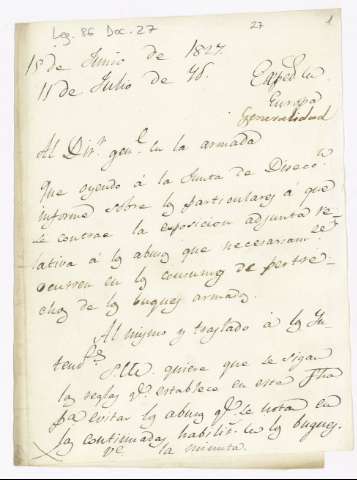 Leg. 86 Doc. 27
27
1
18 de Junio de 1827.
11 de Julio de
Europa
Generalidad
Al Dir.r gen.l de la armada
Que oyendo á la Junta de Direcc.n
informe sobre los particulares á que
se contrae la exposicion adjunta re-
lativa á los abusos que necesariam.te
ocurren en los consumos de pertre-
chos de los buques armados.
Al mismo y traslado á los In-
tend.tes S.M. quiere que se sigan
las reglas q.e establece en esta fha
p.a evitar los abusos q.e se nota en
las continuadas habilit.s de los buques.
ve la minuta.